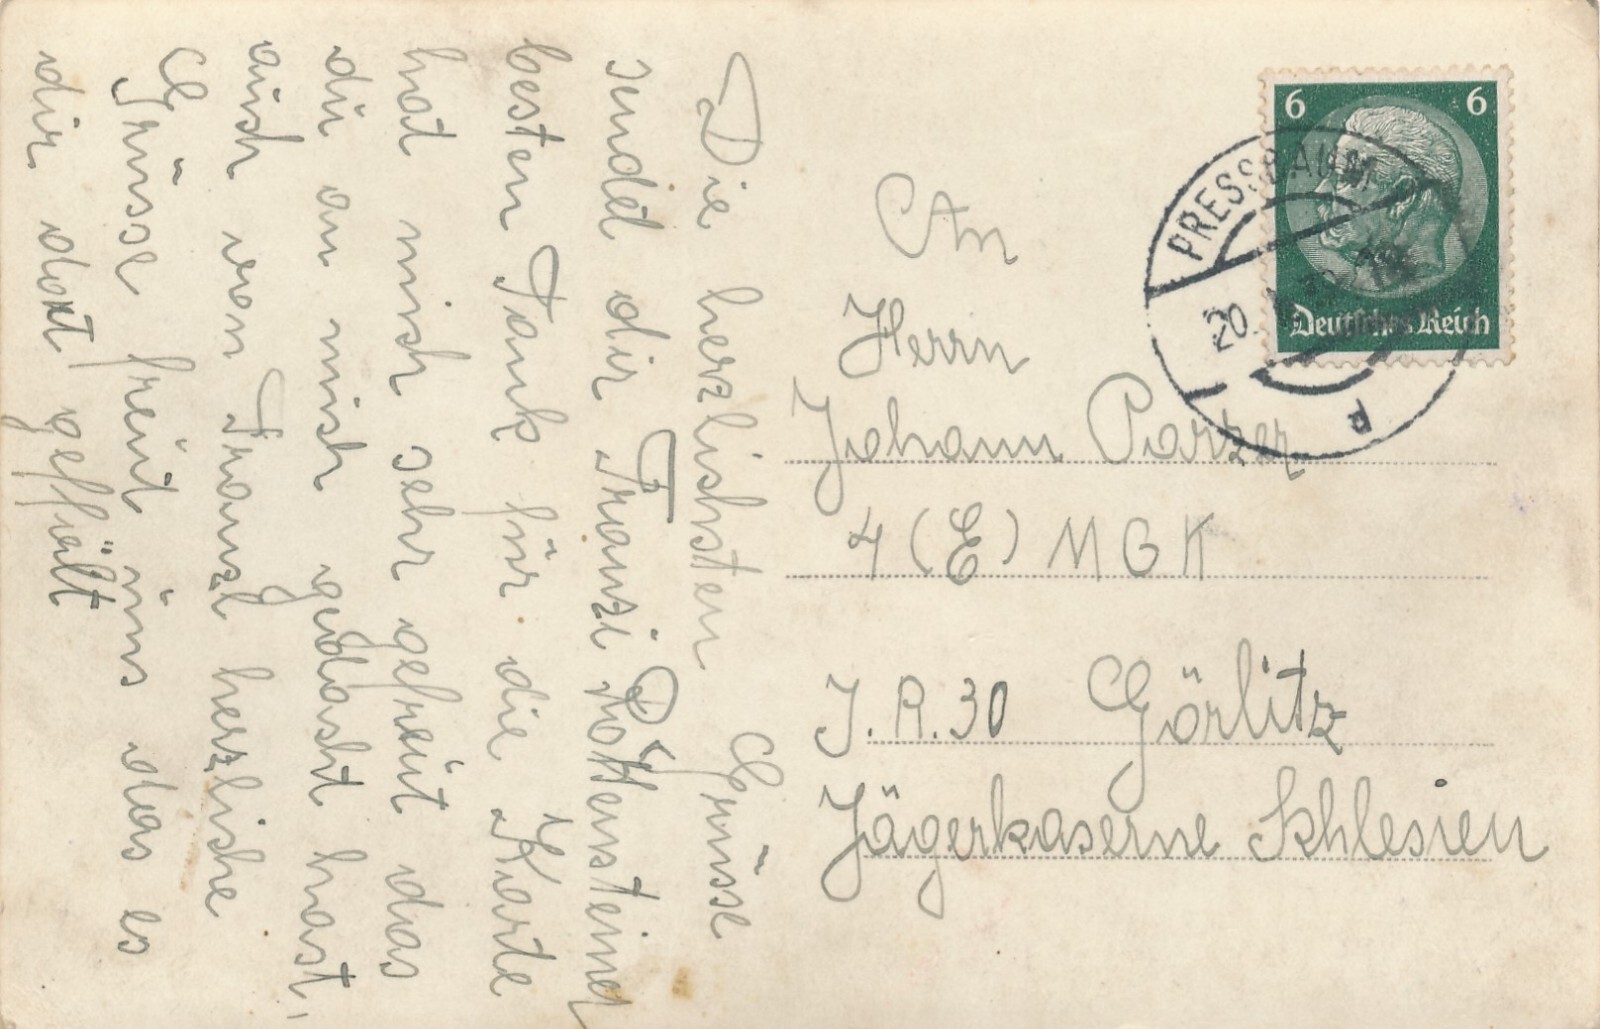 Die herzlichsten Grüsse
sendet dir Franzi Rottensteiner
besten Dank für die Karte
hat mich sehr gefreut das
du an mich gedacht hast,
auch von Franzl herzliche
Grüsse freut uns das es
dir dort gefällt
An
Herrn
Johann Parzer
4 (E) M G K
J. R. 30 Görlitz
Jägerkaserne Schlesien
6 6
Deutsches Reich
PRESSBAUM
20.